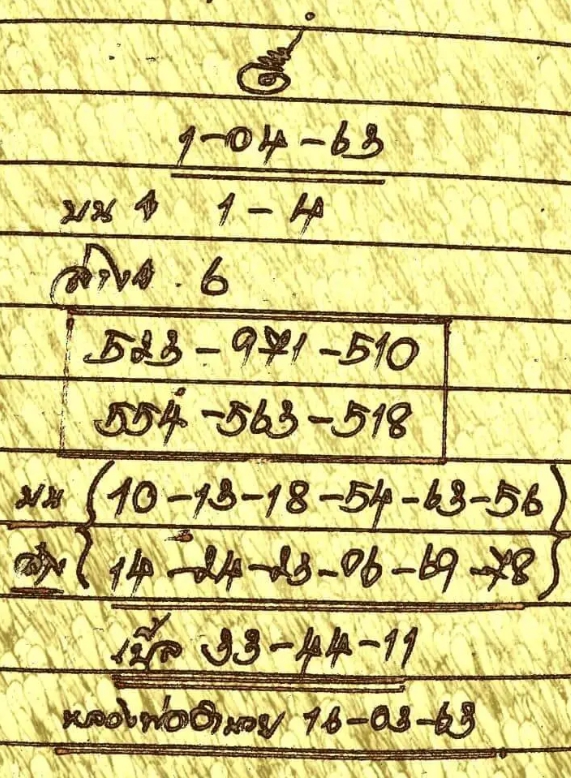 1-04-63
บน 1 1-4
ล่าง 6
523-971-510
554-563-518
บน (10-13-18-54-63-56)
ล่าง {14-24-23-06-69-78}
เบิ้ล 33-44-11
หลวงพ่ออำนวย 16-03-63